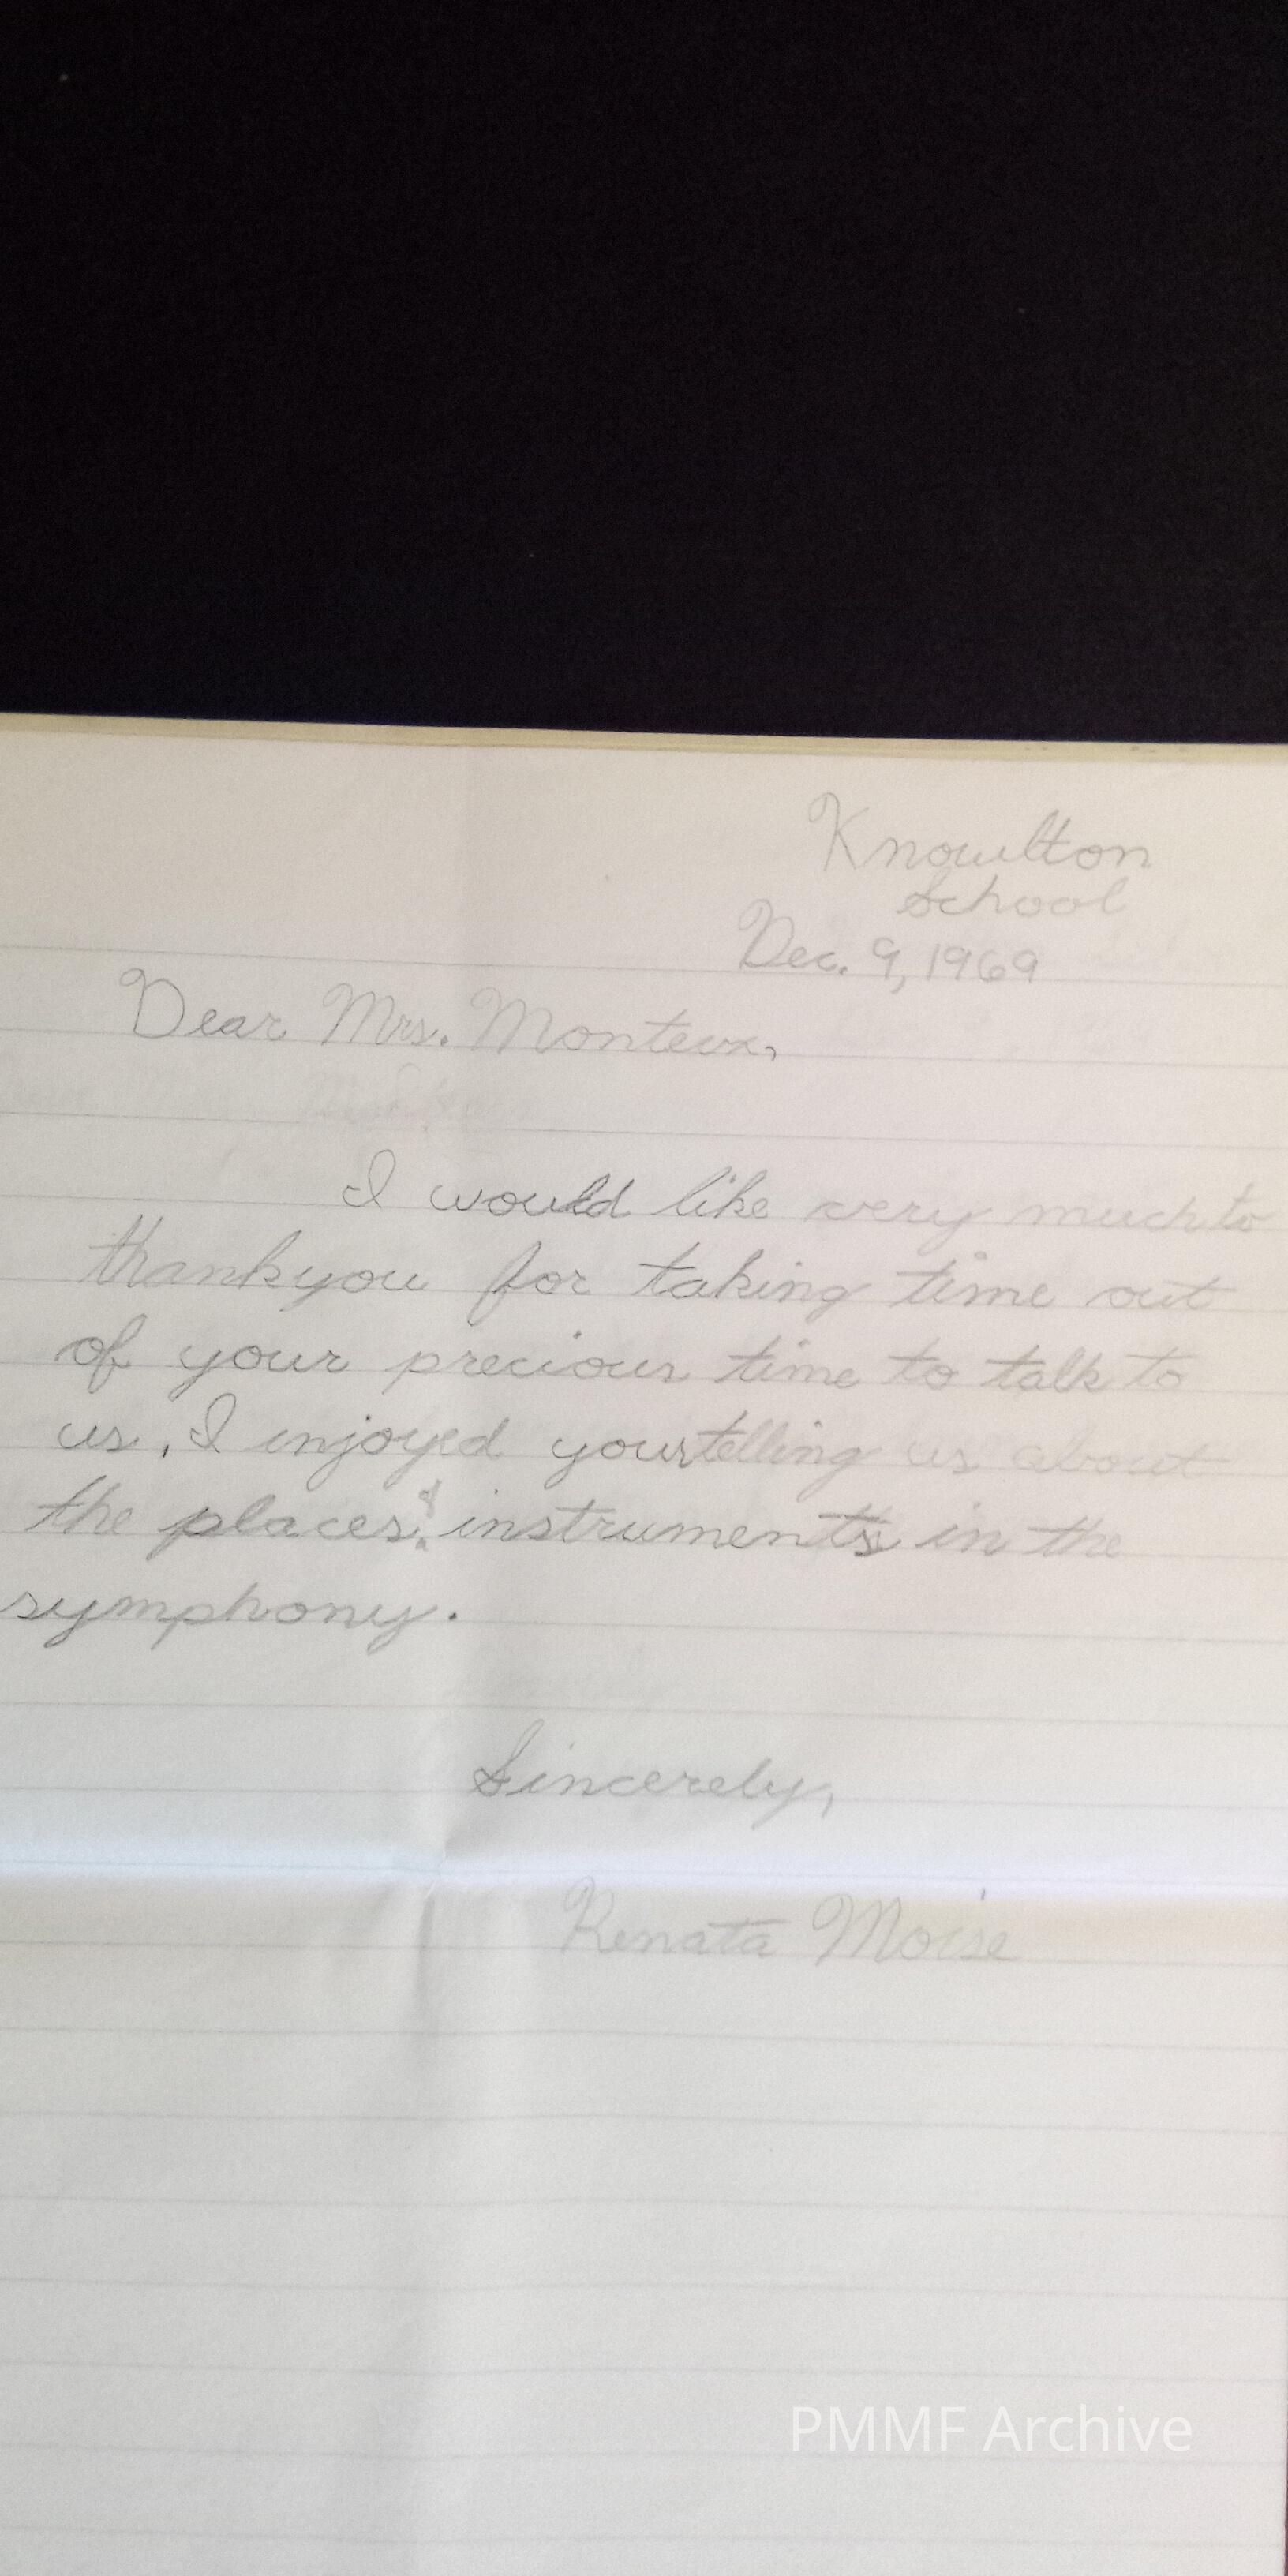 Knowlton
School
Dec. 9, 1969
Dear Mrs. Monteux,
I would like very much to
thankyou for taking time out
of your precious time to talk to
us. I enjoyed your telling us about
the places & instruments in the
symphony.
Sincerely,
Renata Moise
PMMF Archive